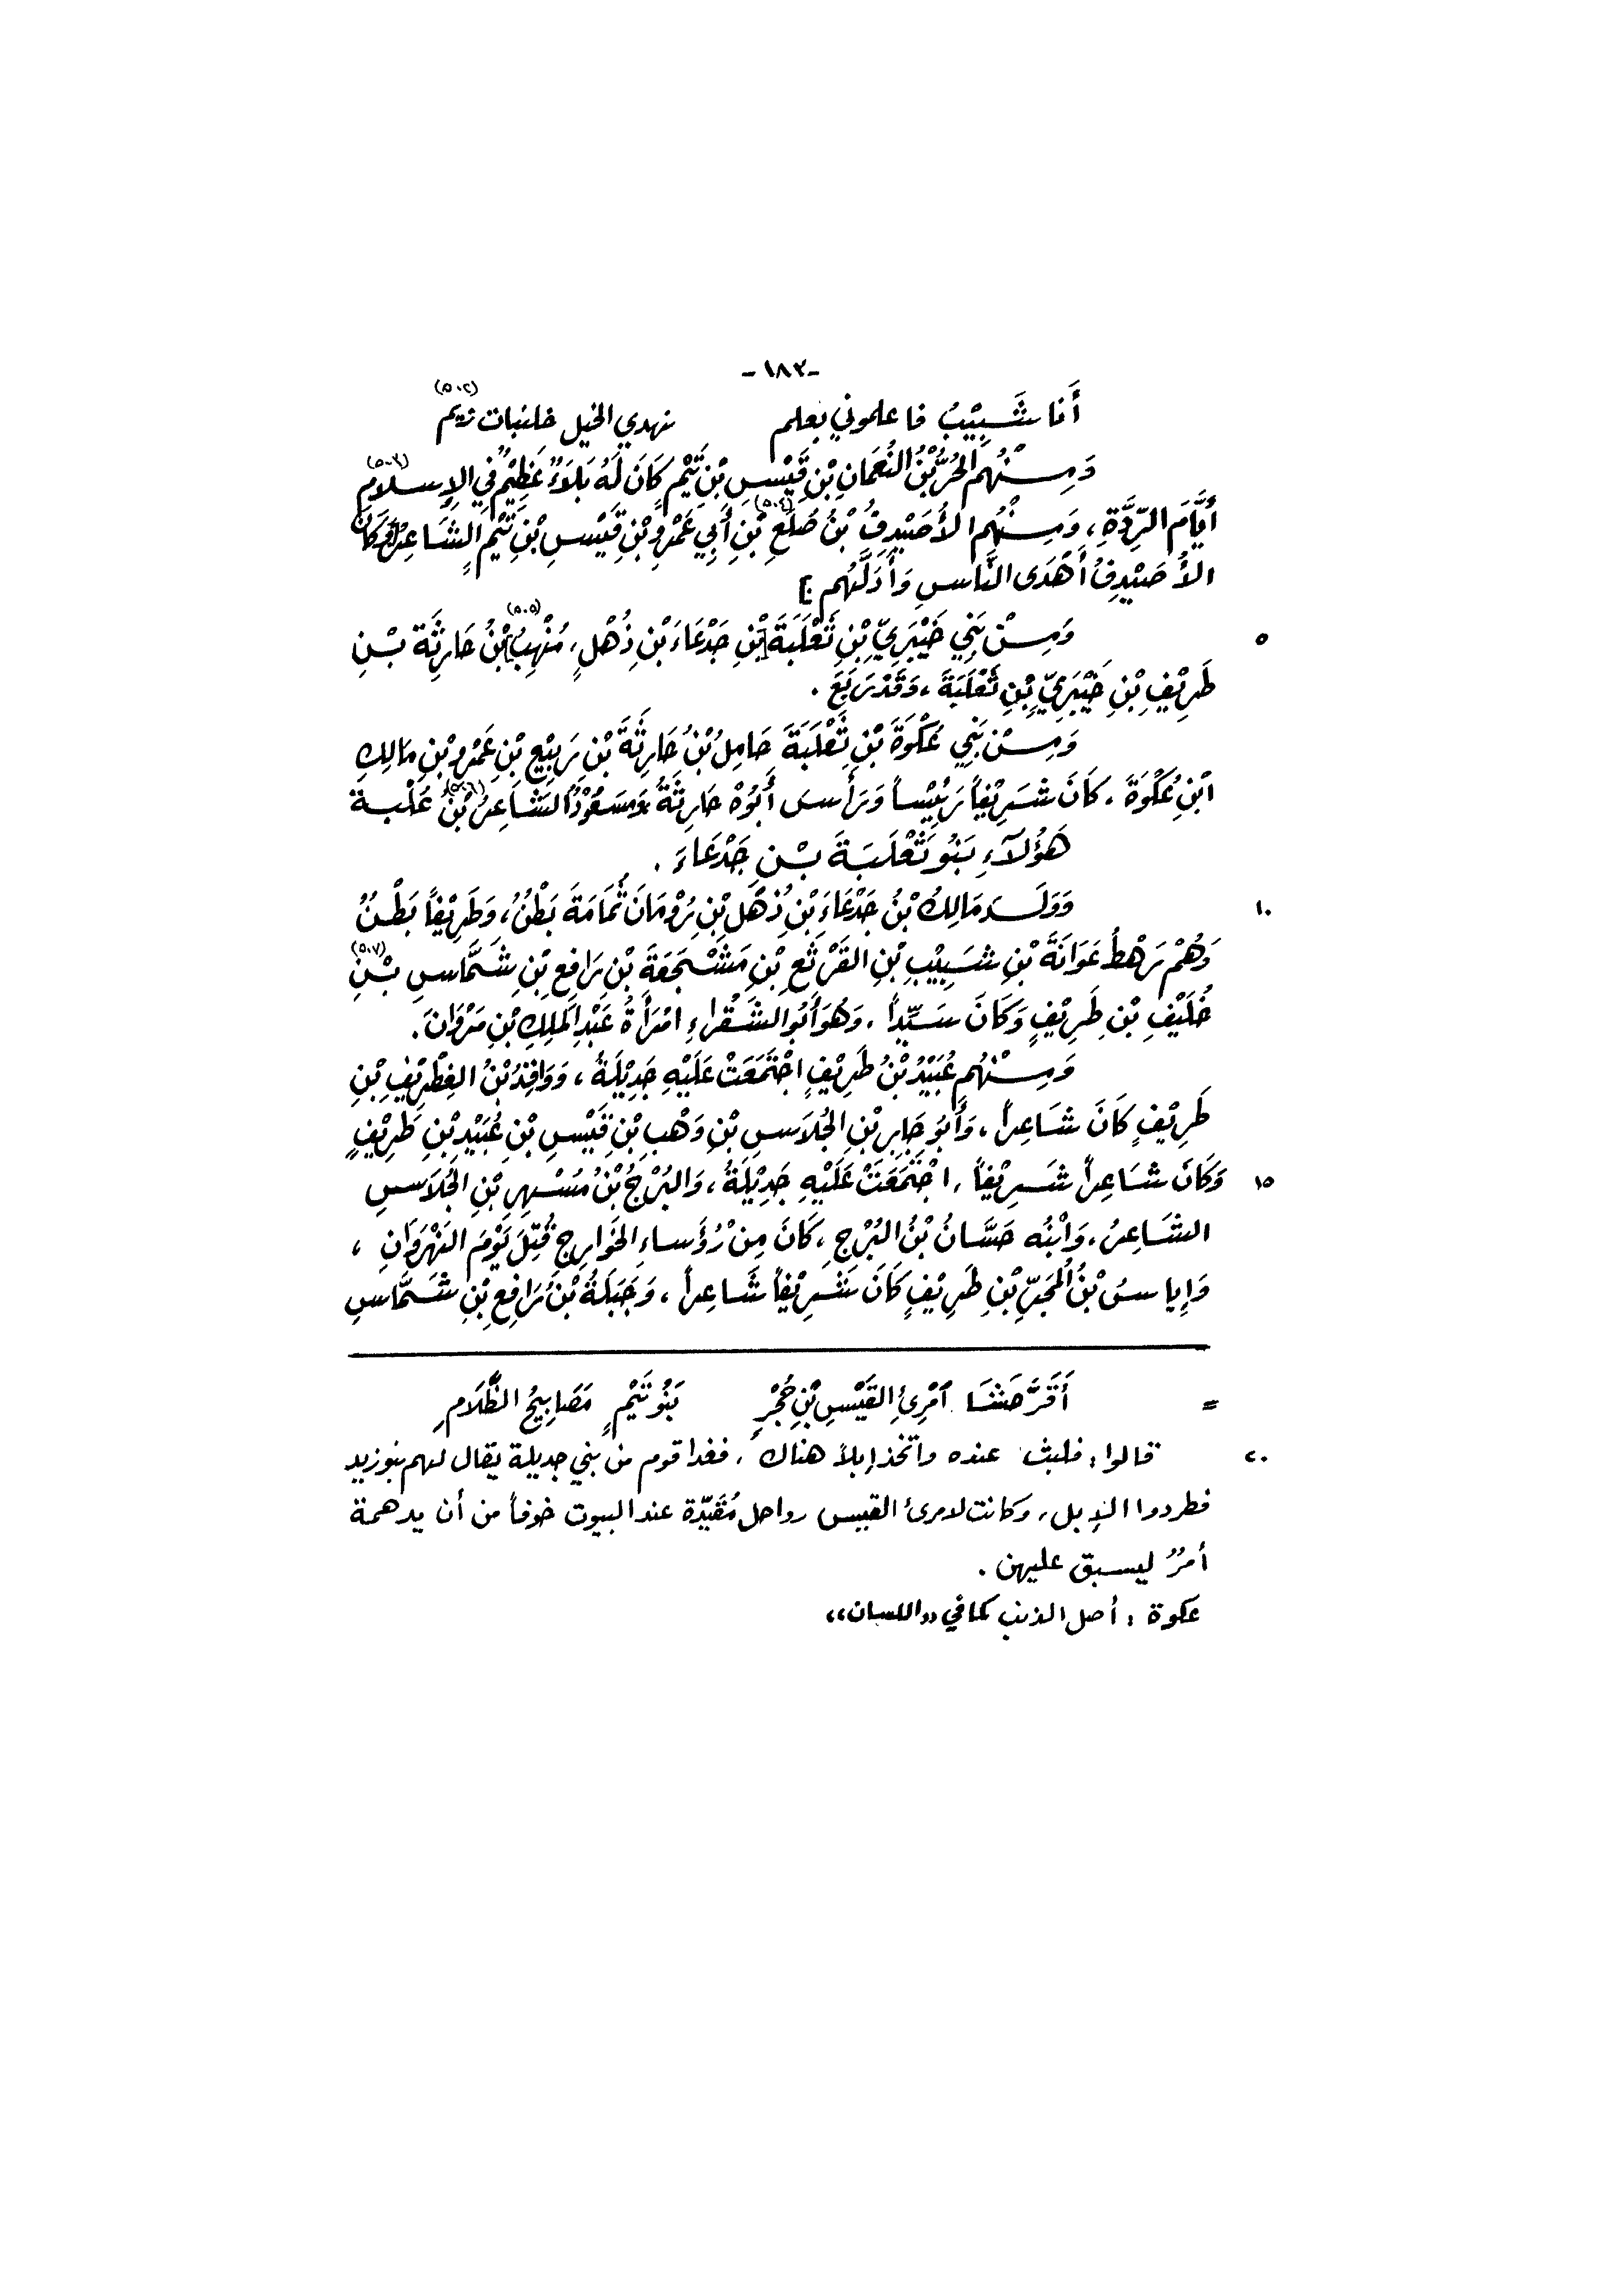 -١٨٣-
أَنا شَبِيْبُ فاعلموني بعلم نهدي الخيل خلنبات زيم (٥٠٢)
وَمِنْهُم الحُرُّ بْنُ النُّعْمَانِ بْنِ قَيْسِ بْنِ تَيْمٍ كَانَ لَهُ بَلَاءٌ عَظِيْمٌ فِي الإِسلامِ (٥٠٣)
أَيَّامَ الرِّدَّةِ، وَمِنْهُم الأُصَيْدِفُ بْنُ صَلَعِ (٥٠٤) بْنِ أَبِي عَمْرِو بْنِ قَيْسِ بْنِ تَيْمٍ الشَّاعِرُ، وَكَانَ
الأُصَيْدِفُ أَهْدَى النَّاسِ وَأَدَلَّهُم.]
٥ وَمِنْ بَنِي خَيْبَرِيِّ بْنِ ثَعْلَبَةَ [بْنِ جَدْعَاءَ بْنِ ذُهْلٍ، مُنْهِبُ] (٥٠٥) بْنُ حَارِثَةَ بْنِ
طَرِيْفِ بْنِ خَيْبَرِيِّ بْنِ ثَعْلَبَةَ، وَقَدْ رَبَعَ.
وَمِنْ بَنِي عُكْوَةَ بْنِ ثَعْلَبَةَ حَامِلُ بْنُ حَارِثَةَ بْنِ رَبِيْعِ بْنِ عَمْرِو بْنِ مَالِكِ
ابْنِ عُكْوَةَ. كَانَ شَرِيْفاً رَئِيْساً وَرَأَسَ أَبُوْهُ حَارِثَةُ، وَمَسعُوْدٌ الشَاعِرُ (٥٠٦) بْنُ عُلْبة
هَؤُلآءِ بَنُو ثَعْلَبَةَ بْنِ جَدْعَاءَ.
١٠ وَوَلَدَ مَالِكُ بْنُ جَدْعَاءَ بْنِ ذُهْلِ بْنِ رُوْمَانَ ثُمَامَةَ بَطْنٌ، وَطَرِيْفاً بَطْنٌ
وَهُمْ رَهْطُ عَوَانَةَ بْنِ شَبِيْبِ بْنِ القَرْثَعِ بْنِ مَشْجَعَةَ بْنِ رَافِعِ بْنِ شَمَّاسِ بْنِ (٥٠٧)
خُلَيْفِ بْنِ طَرِيْفٍ وَكَانَ سَيِّداً. وَهُوَ أَبُو الشَقْراءِ امْرَأَةُ عَبْدِ المَلِكِ بْنِ مَرْوَانَ.
وَمِنْهُم عُبَيْدُ بْنُ طَرِيْفٍ اجْتَمَعَتْ عَلَيْهِ جَدِيْلَةُ، وَوَافِدُ بْنُ الغِطْرِيْفِ بْنِ
طَرِيْفٍ كَانَ شَاعِراً، وَأَبُو جَابِرِ بْنِ الجُلاَسِ بْنِ وَهْبِ بْنِ قَيْسِ بْنِ عُبَيْدِ بْنِ طَرِيْفٍ
١٥ وَكَانَ شَاعِراً شَرِيْفاً، اجْتَمَعَتْ عَلَيْهِ جَدِيْلَةُ، وَالبُرْجُ بْنُ مُسْهِرِ بْنِ الجُلاَسِ
الشَاعِرُ، وَابْنُه حَسَّانُ بْنُ البُرْجِ، كَانَ مِنْ رُؤَساءِ الخَوارِجِ قُتِلَ يَوْمَ النَهْرَوَانِ،
وَإِياسُ بْنُ المُجَبِّرِ بْنِ طَرِيْفٍ كَانَ شَرِيْفاً شَاعِراً، وَجَبَلَةُ بْنُ رَافِعِ بْنِ شَمَّاسِ
= أَقَرَّ حَشَا امْرِئِ القَيْسِ بْنِ حُجْرٍ بَنُو تَيْمٍ مَصَابِيحُ الظَّلَامِ
٢٠ قالوا: فلبث عنده واتخذ إبلاً هناك. فغدا قوم من بني جديلة يقال لهم بنو زيد
فطردوا الإبل، وكانت لامرئ القيس رواحل مُقَيّدة عند البيوت خوفاً من أن يدهمة
أمرٌ ليسبق عليهن.
عكوة: أصل الذنب كما في «اللسان»